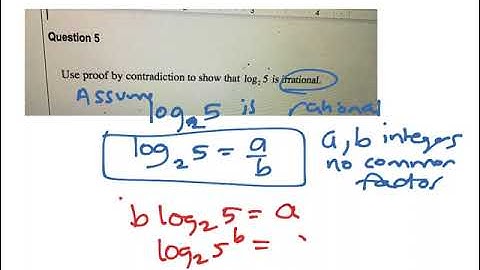 Question 5
Use proof by contradiction to show that log₂ 5 is irrational.
Assum log₂5 is rational
log₂5 = a/b
a, b integers
no common
factor
b log₂5 = a
log₂5ᵇ =